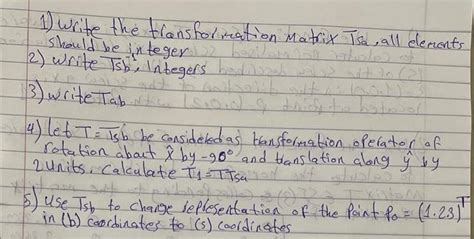 1) write the transformation Matrix Tsa, all elements
should be integer
2) write Tsb, Integers
3) write Tab
4) let T = Tsb be considered as transformation operator of
rotation about x̂ by -90° and translation along ŷ by
2 units, calculate T1 = TTsa
5) Use Tsb to change representation of the point Po = (1.23)T
in (b) coordinates to (s) coordinates